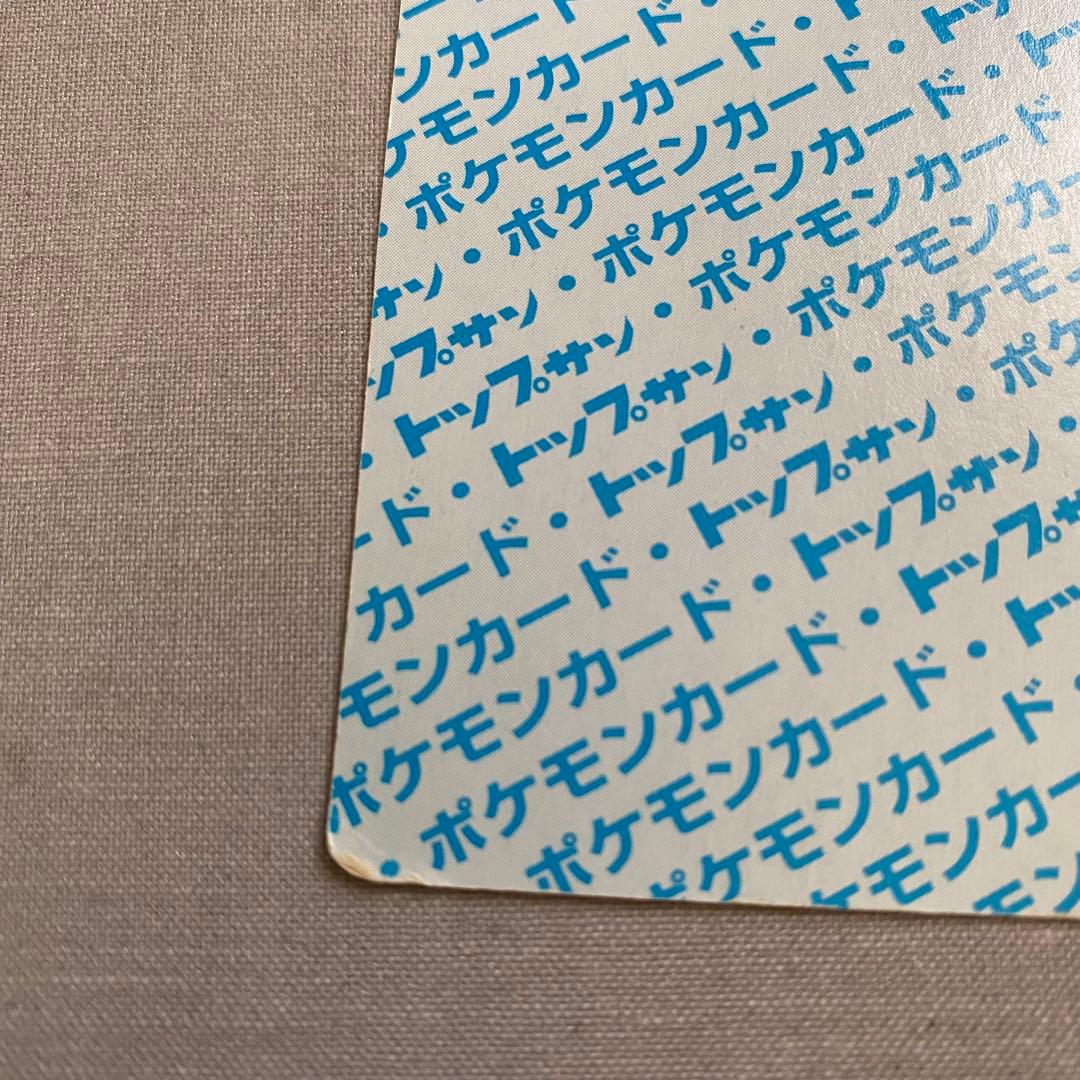 ンカード
ケモンカード・
・ポケモンカード・ト
サン・ポケモンカード・トップ
ップサン・ポケモンカード・ト
・トップサン・ポケモンカード
ード・トップサン・ポケモンカー
カード・トップサン・ポケモン
モンカード・トップサン・ポケ
ポケモンカード・トップサン・
・ポケモンカード・トップサ
ポケモンカード・トッ
ポケモンカード・
ケモンカー
モン